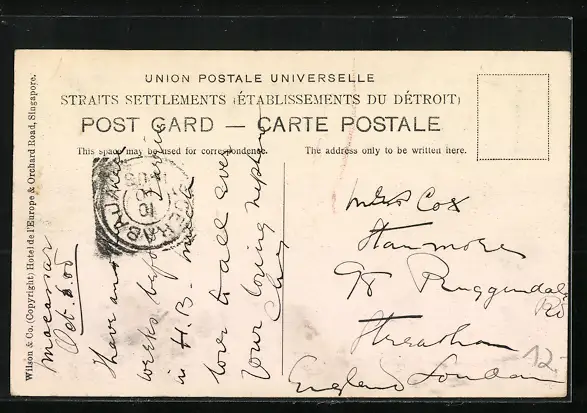 UNION POSTALE UNIVERSELLE
STRAITS SETTLEMENTS (ÉTABLISSEMENTS DU DÉTROIT)
POST CARD — CARTE POSTALE
This space may be used for correspondence.
The address only to be written here.
Wilson & Co. (Copyright) Hotel de l'Europe & Orchard Road, Singapore.
Macassar
Oct. 6. 05
I have
weeks before
in H.B.
love to all ever
Your loving nephew
SOERABAJA
Miss Cox
Stanmore
98 Ruggendale
Rd
Streatham
England London
12.-